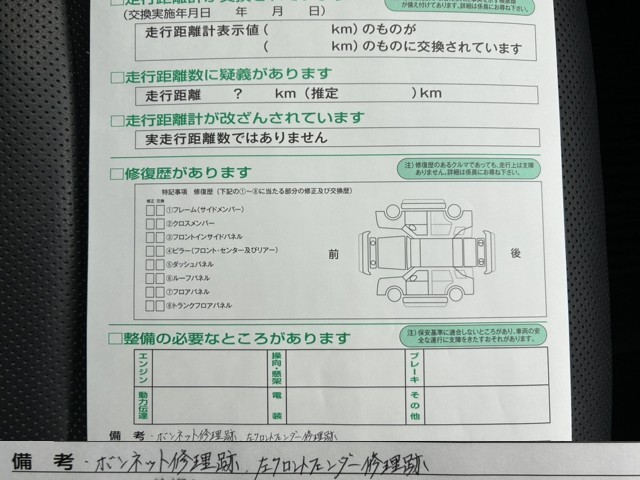 □走行距離計が交換されています
(交換実施年月日　年　月　日)
走行距離計表示値 (　km) のものが
(　km) のものに交換されています
が備え付けてあります。詳細は係員にお尋ね下さい。
□走行距離数に疑義があります
走行距離　?　km (推定　) km
□走行距離計が改ざんされています
実走行距離数ではありません
□修復歴があります
注) 修復歴のあるクルマであっても、走行上は支障ありません。詳細は係員にお尋ね下さい。
特記事項　修復歴 (下記の①~⑧に当たる部分の修正及び交換歴)
修正 交換
□□①フレーム(サイドメンバー)
□□②クロスメンバー
□□③フロントインサイドパネル
□□④ピラー(フロント・センター及びリアー)
□□⑤ダッシュパネル
□□⑥ルーフパネル
□□⑦フロアパネル
□□⑧トランクフロアパネル
前　後
□整備の必要なところがあります
注) 保安基準に適合しないところがあり、車両の安全な運行に支障をきたすおそれがあります。
エンジン　操向・懸架　ブレーキ
動力伝達　電装　その他
備 考 ・ボンネット修理跡、左フロントフェンダー修理跡
備 考 ・ボンネット修理跡、左フロントフェンダー修理跡